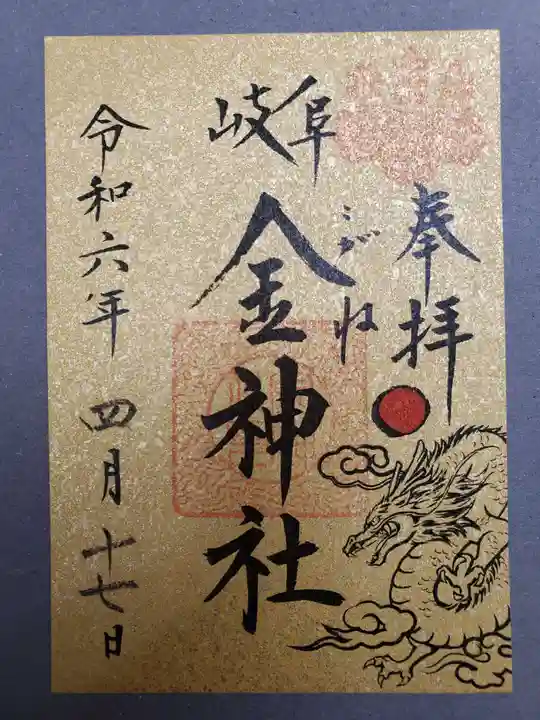 奉拝
岐阜
こがね
金神社
令和六年 四月十七日